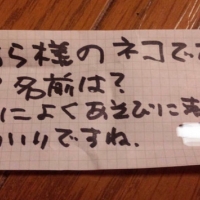 ら様のネコです
名前は?
によくあそびに来
いりですね.